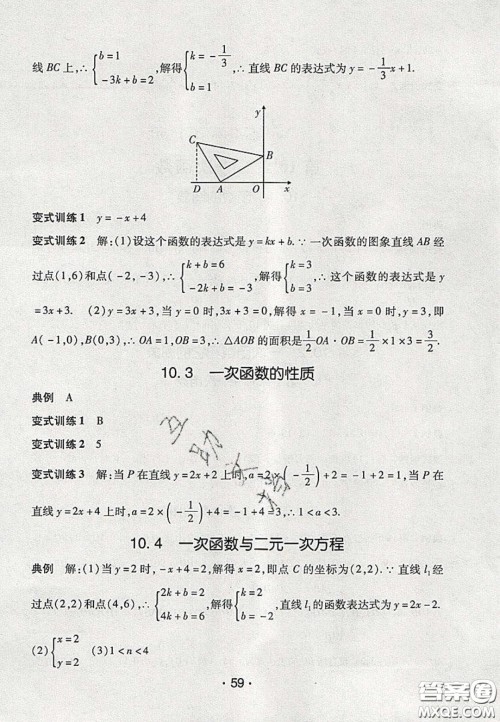 线 BC 上,∴{b=1 -3k+b=2,解得{k=-1/3 b=1,∴直线 BC 的表达式为 y=-1/3x+1.
y
C
B
D A O x
变式训练1 y=-x+4
变式训练2 解:(1)设这个函数的表达式是 y=kx+b.∵一次函数的图象直线 AB 经
过点(1,6)和点(-2,-3),∴{k+b=6 -2k+b=-3,解得{k=3 b=3,∴这个函数的表达式是 y
=3x+3. (2)y=3x+3,当 y=0 时,3x+3=0,解得 x=-1,当 x=0 时,y=3,即
A(-1,0),B(0,3),∴OA=1,OB=3,∴△AOB 的面积是1/2OA·OB=1/2×1×3=3/2.
10.3 一次函数的性质
典例 A
变式训练1 B
变式训练2 5
变式训练3 解:当 P 在直线 y=2x+2 上时,a=2×(-1/2)+2=-1+2=1,当 P 在
直线 y=2x+4 上时,a=2×(-1/2)+4=-1+4=3,∴1<a<3.
10.4 一次函数与二元一次方程
典例 解:(1)当 y=2 时,-x+4=2,解得 x=2,即点 C 的坐标为(2,2).∵直线 l₁经
过点(2,2)和点(4,6),∴{2k+b=2 4k+b=6,解得{k=2 b=-2,直线 l₁的函数表达式为 y=2x-2.
(2){x=2 y=2 (3)1<n<4
·59·
答案圈
MXQE.COM